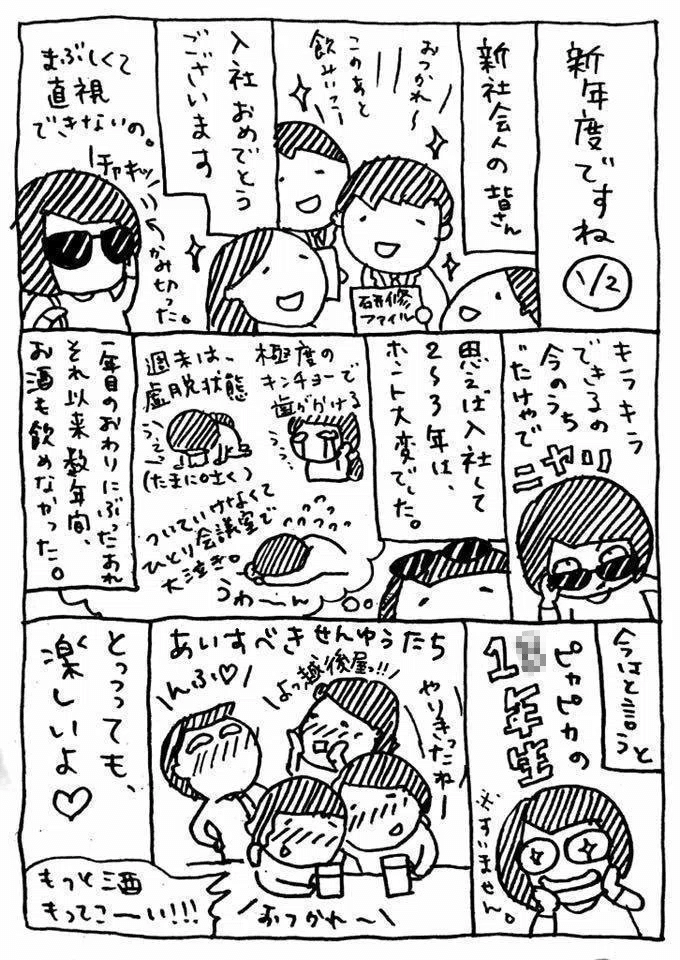 新年度ですね
1/2
新社会人の皆さん
おつかれ〜
このあと
飲みいこー
研修
ファイル
入社おめでとう
ございます
まぶしくて
直視
できないの。
チャキッ
かみ切った。
キラキラ
できるの
今のうち
だけやで
ニヤリ
思えば入社して
2〜3年は、
ホント大変でした。
極度の
キンチョーで
歯がかける
ううう…
週末は、
虚脱状態
うぇぇ
(たまに吐く)
ついていけなくて
ひとり会議室で
大泣き。
うわーーん
一年目のおわりにぶったおれ
それ以来数年間、
お酒も飲めなかった。
今はと言うと
ピカピカの
1 年生
※すいません。
あいすべきせんゆうたち
んふ♡
よっ越後屋っ!!
やりきったねー
おつかれ〜
とっっっても、
楽しいよ♡
もっと酒
もってこーい!!!